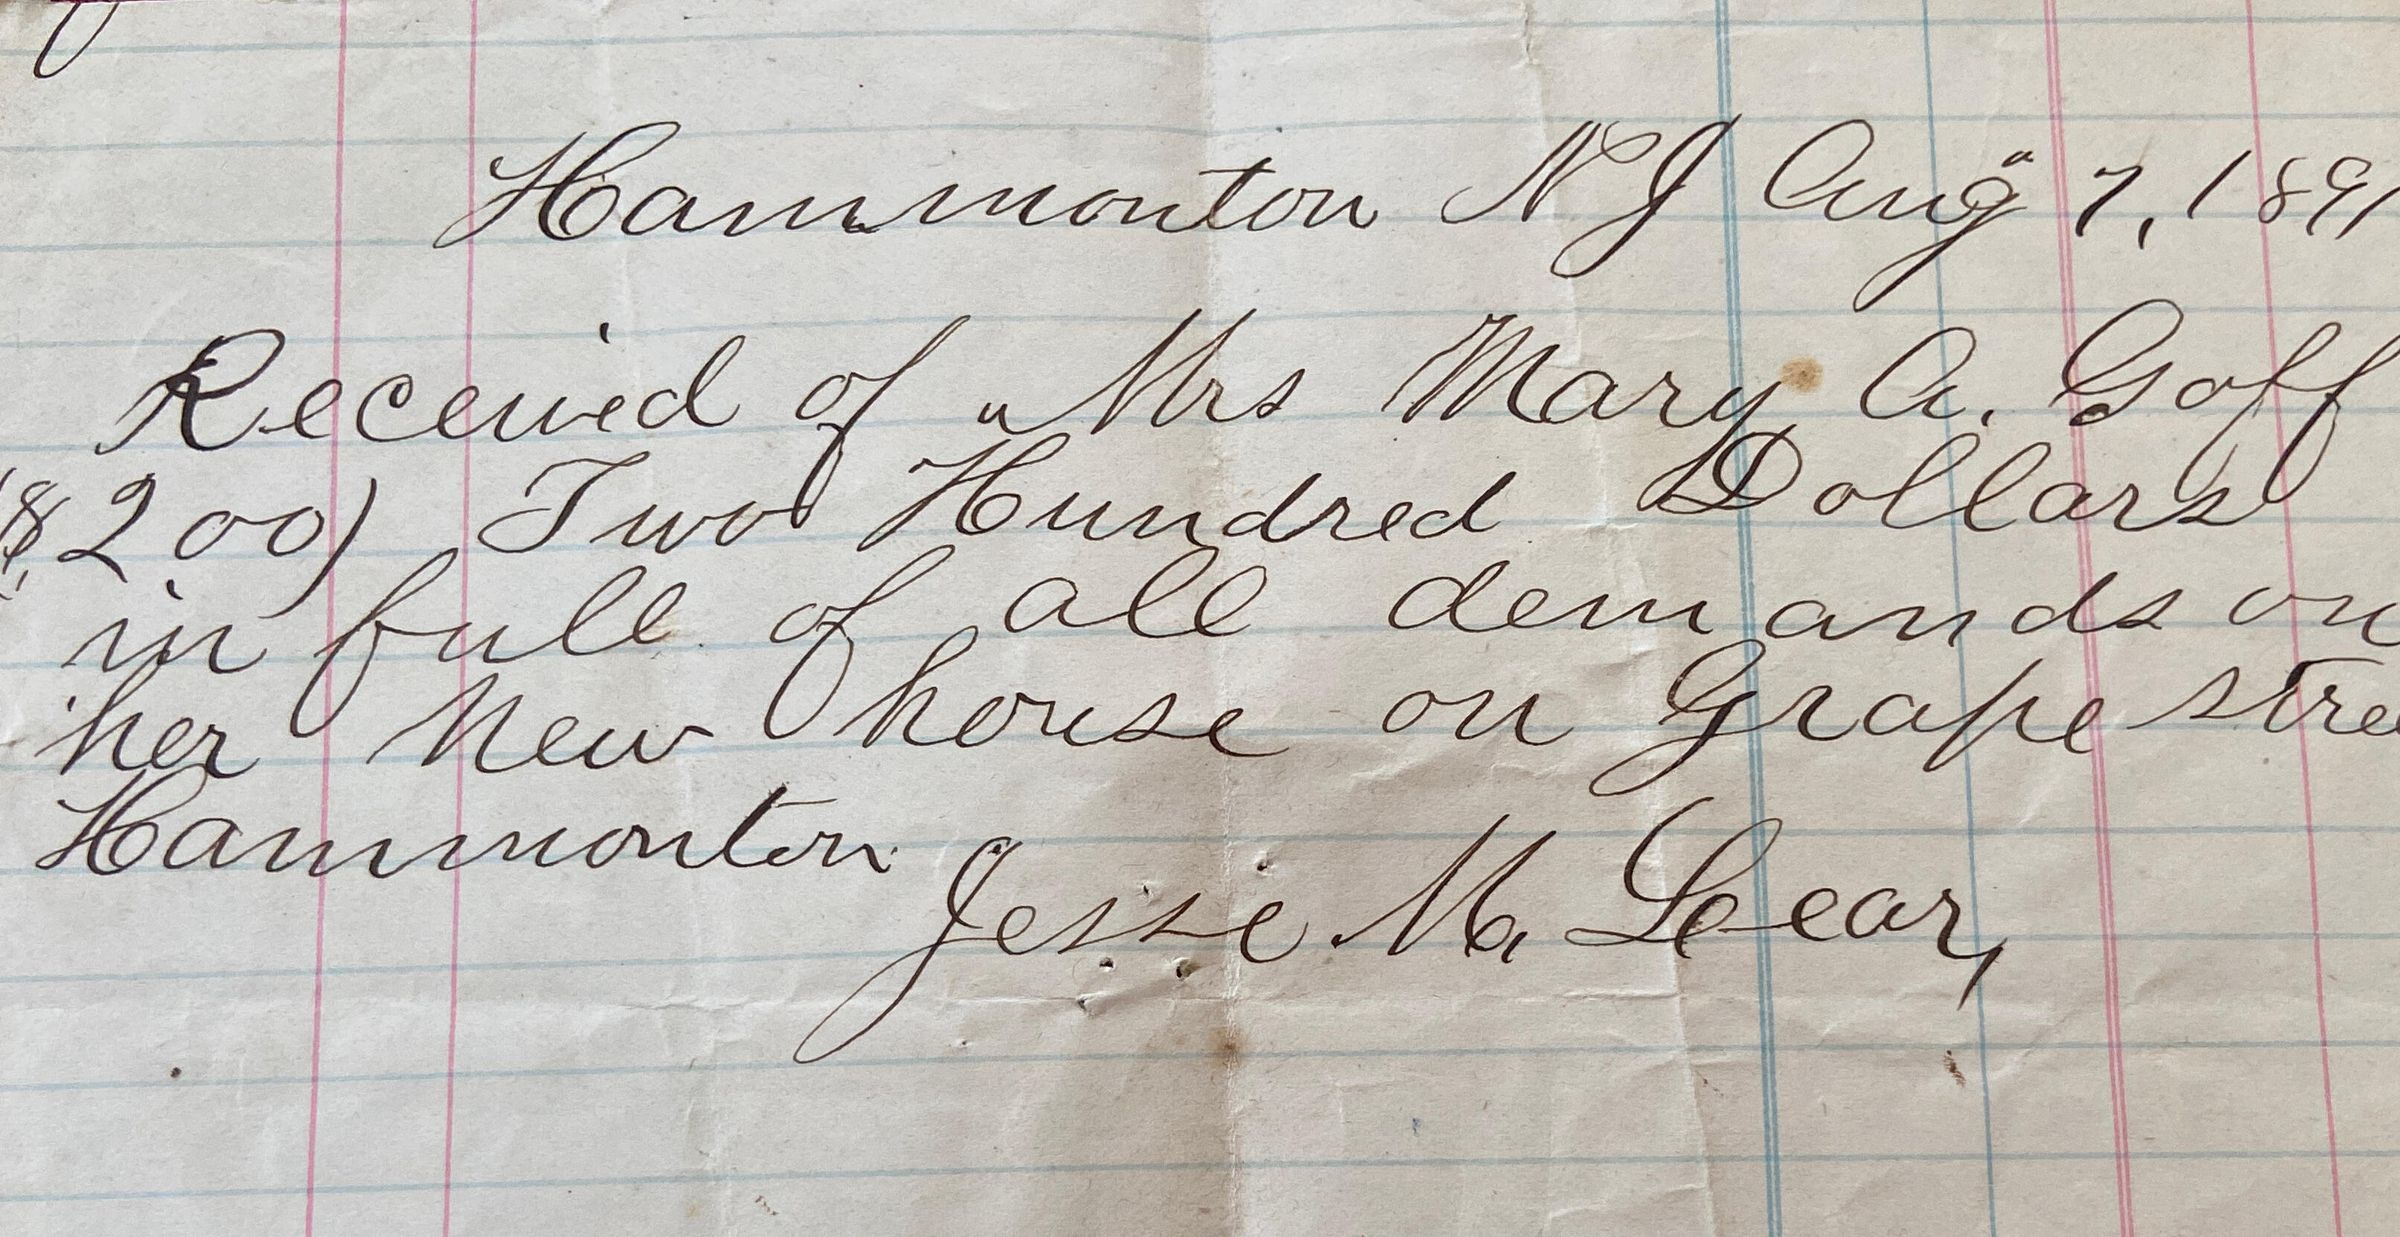 Hammonton NJ Aug" 7, 1891
Received of Mrs Mary A. Goff
($200) Two Hundred Dollars
in full of all demands on
her New house on Grape stree
Hammonton
Jesse M. Lear,